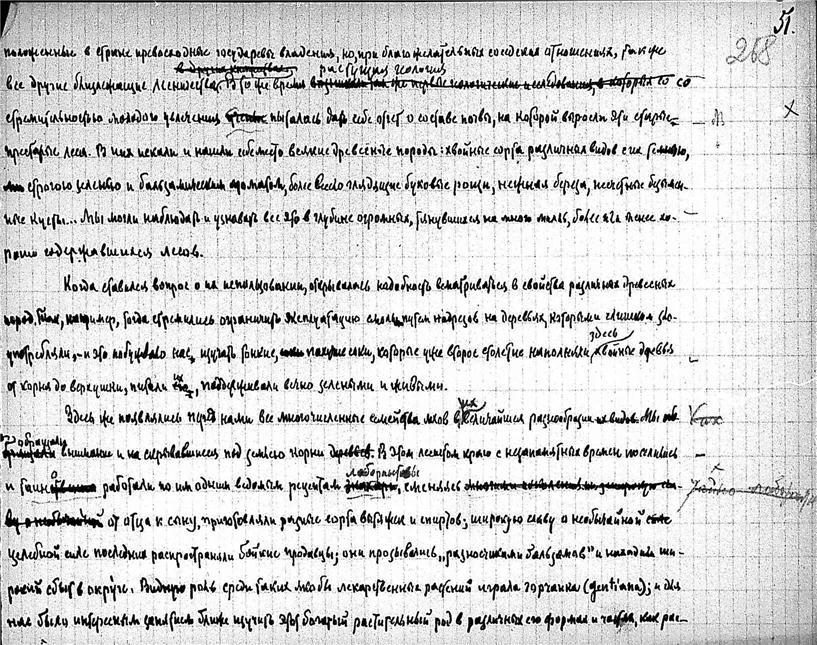 51.
268
положенные в стране превосходные государевы владения, но, при благожелательных соседских отношениях, также
растущая геология
все другие ближлежащие лесничества. В то же время со
стремительностью молодого увлечения пыталась дать себе отчет о составе почвы, на которой выросли эти старые-
престарые леса. В них искали и нашли себе место всякие древесные породы: хвойные сорта различных видов с их темною,
строгою зеленью и бальзамическим ароматом, более весело глядящие буковые рощи, нежная береза, несчетные безымян-
ные кусты... Мы могли наблюдать и узнавать все это в глубине огромных, тянувшихся на много миль, более или менее хо-
рошо содержавшихся лесов.
Когда ставился вопрос о их использовании, открывалась надобность всматриваться в свойства различных древесных
пород. Так, например, когда стремились ограничить эксплуатацию смолы путем надрезов на деревьях, которыми слишком зло-
употребляли, - и это побуждало нас изучать тонкие соки, которые уже второе столетие наполняли здесь хвойные деревья
от корня до верхушки, питали их, поддерживали вечно зелеными и живыми.
Здесь же появлялись перед нами все многочисленные семейства мхов в их величайшем разнообразии. Мы
обращали внимание и на скрывавшиеся под землею корни. В этом лесистом краю с незапамятных времен поселились
и тайно работали по им одним ведомым рецептам лаборанты, сменяясь
от отца к сыну, приготовляли разные сорта вытяжек и спиртов; широкую славу о необычайной
целебной силе последних распространяли бойкие продавцы; они прозывались „разносчиками бальзамов" и находили ши-
рокий сбыт в округе. Видную роль среди таких якобы лекарственных растений играла горчанка (gentiana); и для
нас было интересным занятием ближе изучить этот богатый растительный род в различных его формах и числа, как рас-